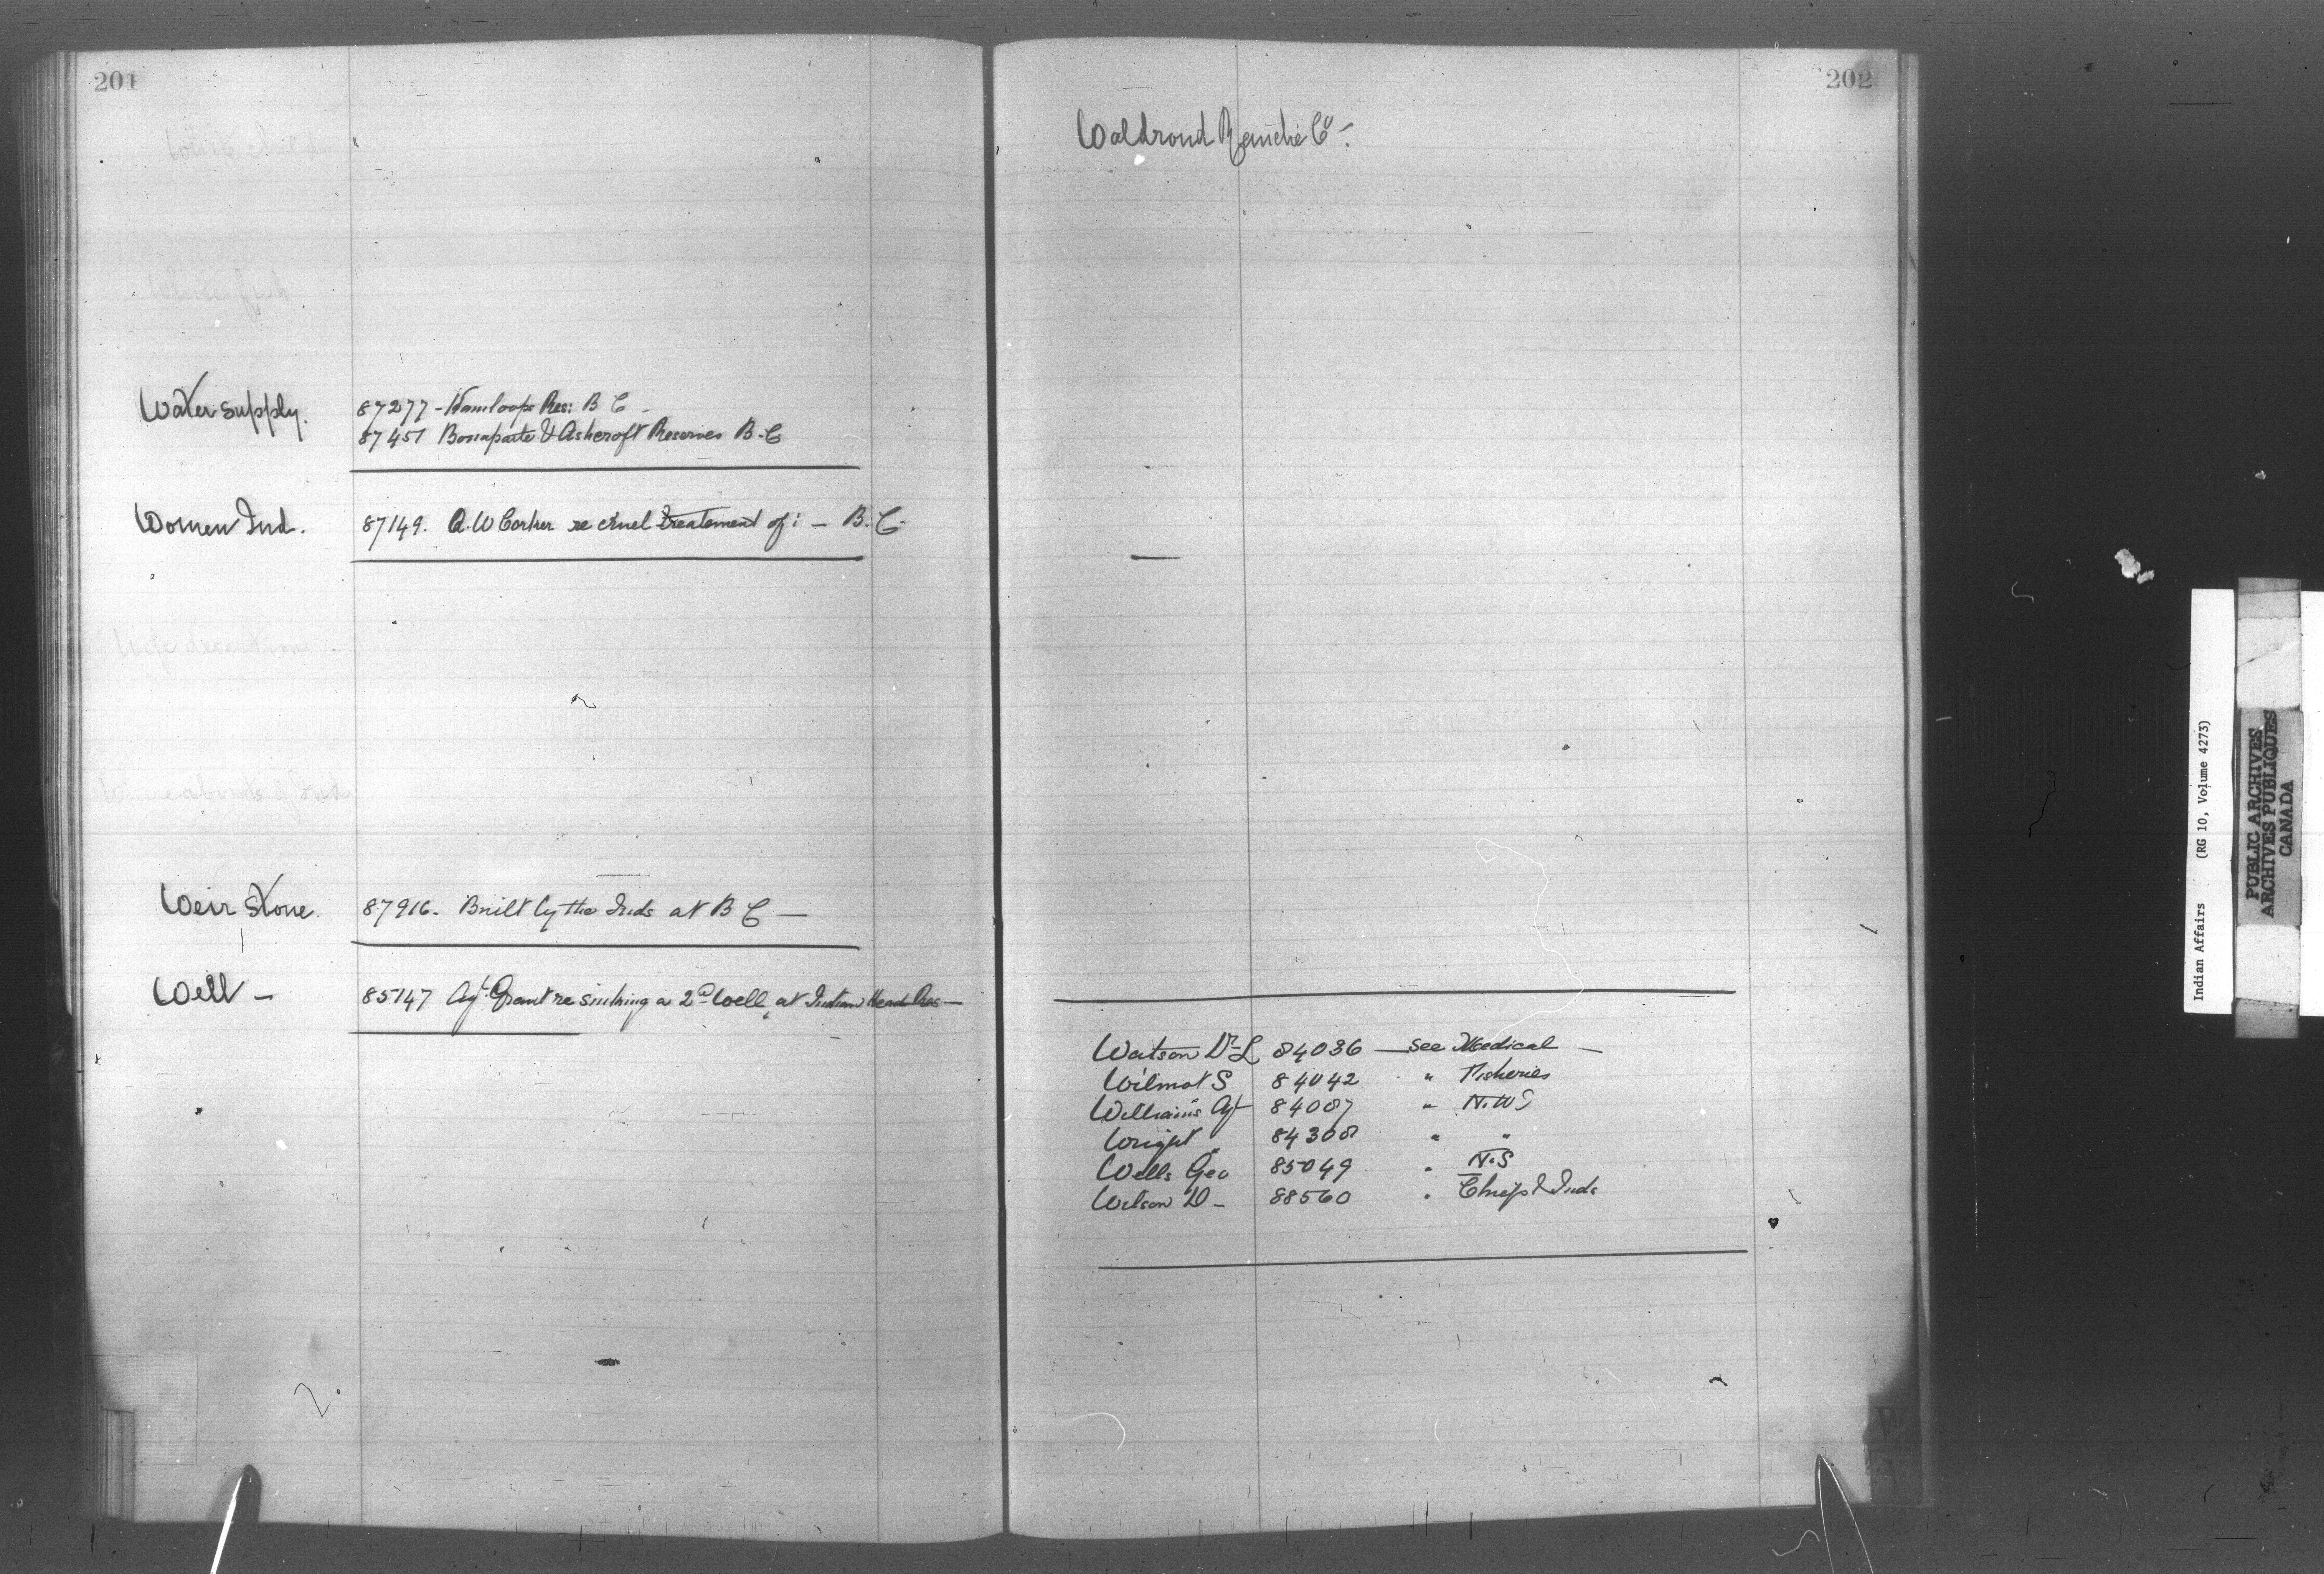 201
White child
White fish
Water supply. 87277 - Kamloops Res: B C -
87451 Bonaparte & Ashcroft Reserves B.C
Women Ind. 87149. A.W Corker re cruel treatement of: - B.C.
Wife desertions
Whereabouts of Ind
Weir Stone. 87916. Built by the Inds at B C -
Well - 85147 Agt. Grant re sinking a 2d Well, at Indian Head Res -
202
Waldrond Ranche Co -.
Watson Dr L 84036 - see Medical -
Wilmot S 84042 " Fisheries
Williams Agt 84087 " N.W.T
Wright " 84308 " "
Wells Geo 85049 " N.S
Wilson D - 88560 " Chiefs & Inds
W
Indian Affairs (RG 10, Volume 4273)
PUBLIC ARCHIVES
ARCHIVES PUBLIQUES
CANADA